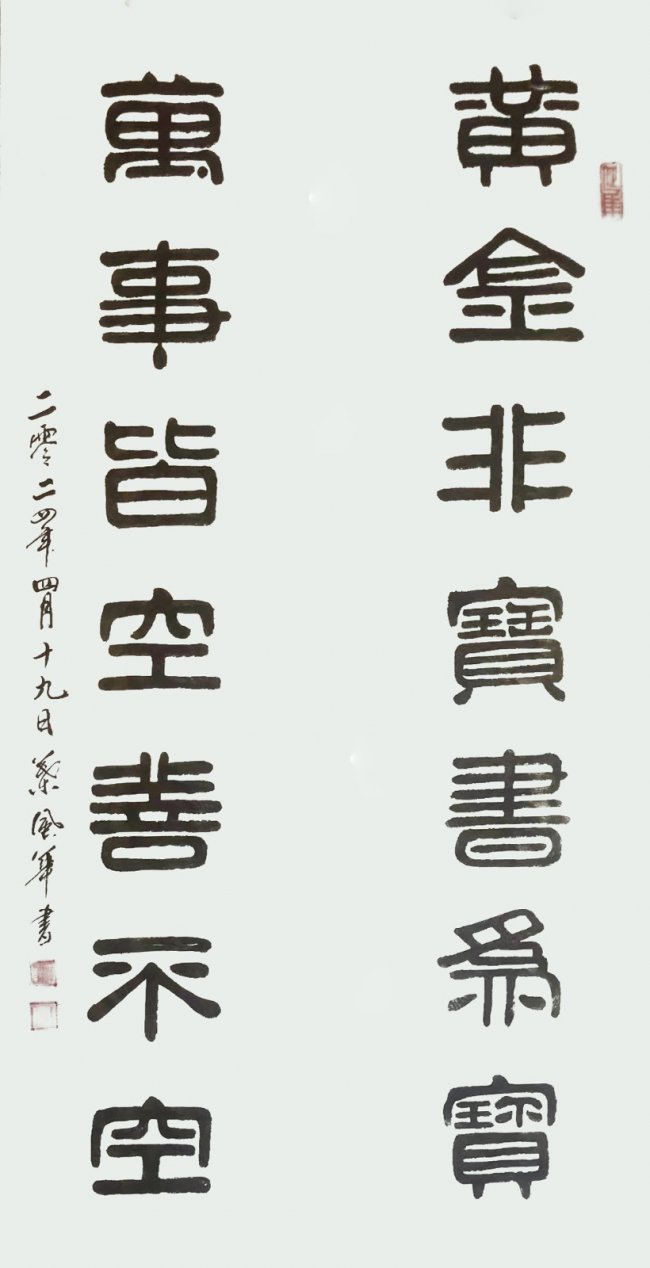 黃金非寶書為寶
萬事皆空善不空
二零二四年四月十九日 風華書